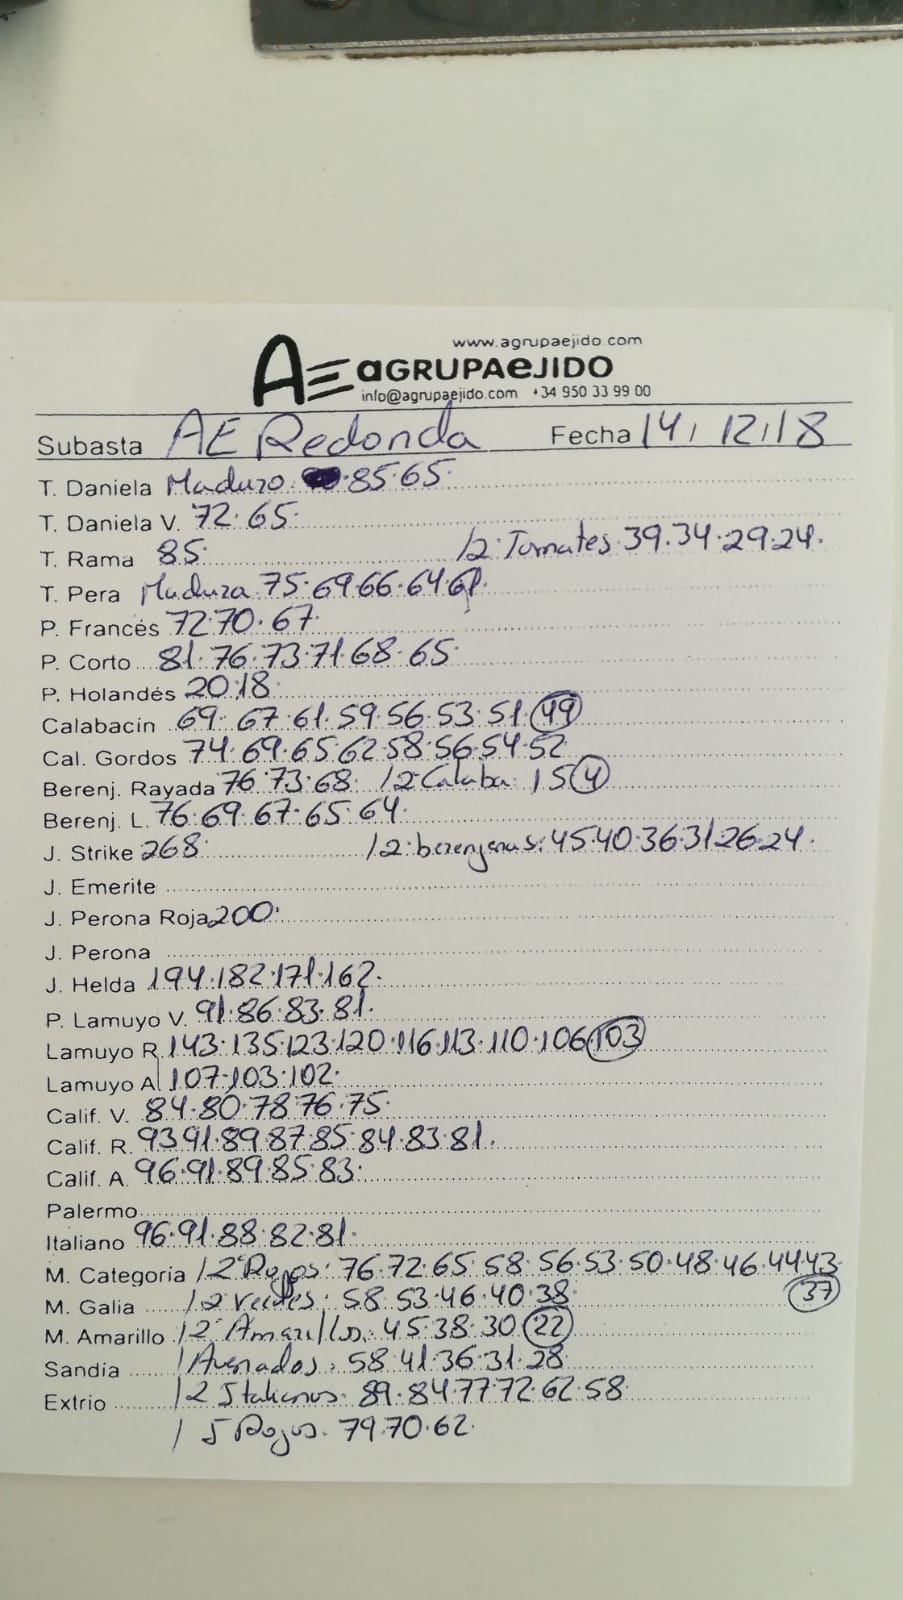 www.agrupaejido.com
AE aGRUPAeJIDO
info@agrupaejido.com +34 950 33 99 00
Subasta AE Redonda Fecha 14/12/18
T. Daniela Maduro. 85.65.
T. Daniela V. 72.65.
T. Rama 85. /2ª Tomates. 39.34.29.24.
T. Pera Madura 75.69.66.64.61.
P. Francés 72.70.67.
P. Corto 81.76.73.71.68.65.
P. Holandés 20.18.
Calabacín 69.67.61.59.56.53.51.49
Cal. Gordos 74.69.65.62.58.56.54.52
Berenj. Rayada 76.73.68. /2ª Calaba. 15 4
Berenj. L. 76.69.67.65.64.
J. Strike 268. /2ª berenjenas: 45.40.36.31.26.24.
J. Emerite
J. Perona Roja 200.
J. Perona
J. Helda 194.182.171.162.
P. Lamuyo V. 91.86.83.81.
Lamuyo R. 143.135.123.120.116.113.110.106 103
Lamuyo A 107.103.102.
Calif. V. 84.80.78.76.75.
Calif. R. 93.91.89.87.85.84.83.81.
Calif. A. 96.91.89.85.83.
Palermo
Italiano 96.91.88.82.81.
M. Categoría /2ª Rojos: 76.72.65.58.56.53.50.48.46.44.43.
M. Galia /2 Verdes: 58.53.46.40.38. 37
M. Amarillo /2ª Amarillos: 45.38.30 22
Sandía / Asurados: 58.41.36.31.28
Extrio /2 Italianos. 89.84.77.72.62.58.
/ 5 Rojos. 79.70.62.